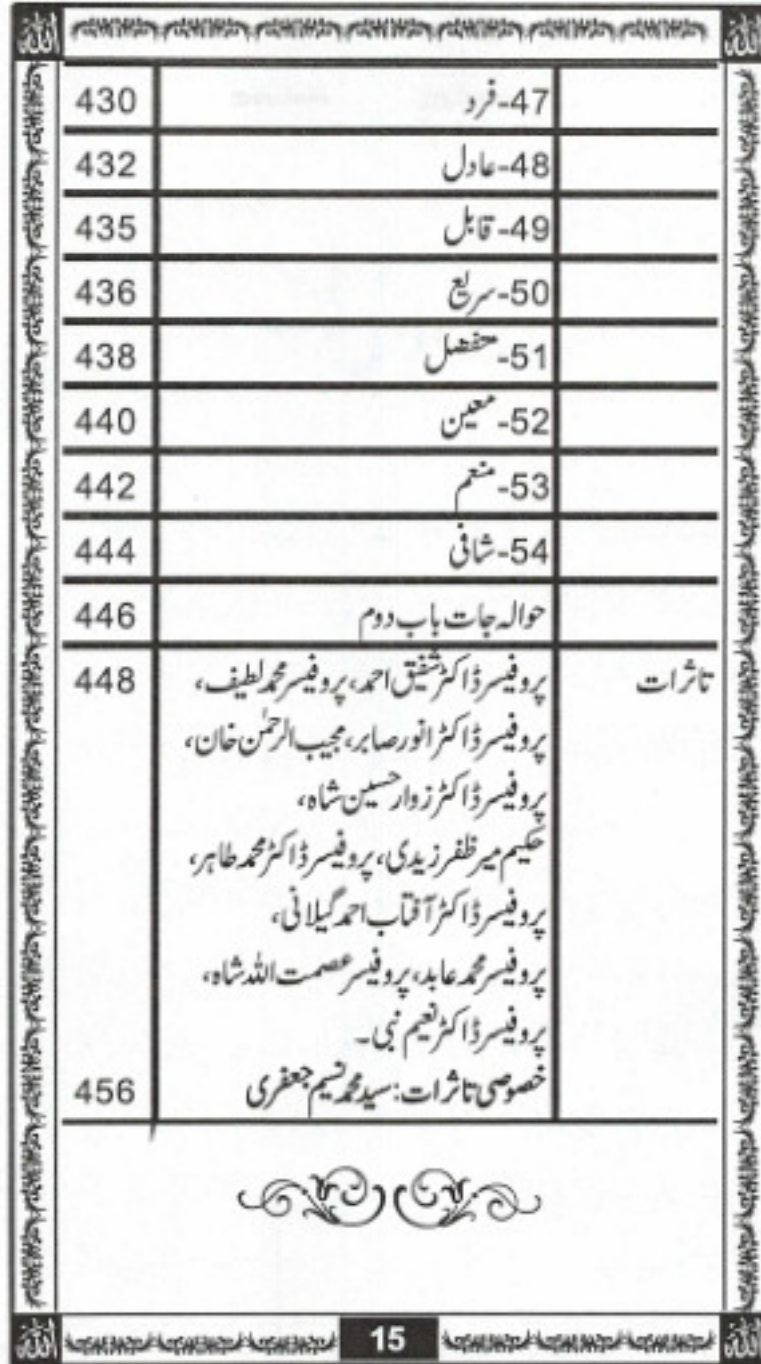 اللہ
اللہ
47-فرد 430
48-عادل 432
49-قابل 435
50-سریع 436
51-متفضل 438
52-معین 440
53-منعم 442
54-شافی 444
حوالہ جات باب دوم 446
تاثرات پروفیسر ڈاکٹر شفیق احمد، پروفیسر محمد لطیف، 448
پروفیسر ڈاکٹر انور صابر، مجیب الرحمٰن خان،
پروفیسر ڈاکٹر زوار حسین شاہ،
حکیم میر ظفر زیدی، پروفیسر ڈاکٹر محمد طاہر،
پروفیسر ڈاکٹر آفتاب احمد گیلانی،
پروفیسر محمد عابد، پروفیسر عصمت اللہ شاہ،
پروفیسر ڈاکٹر نعیم نبی۔
خصوصی تاثرات: سید محمد نسیم جعفری 456
اللہ
15
اللہ